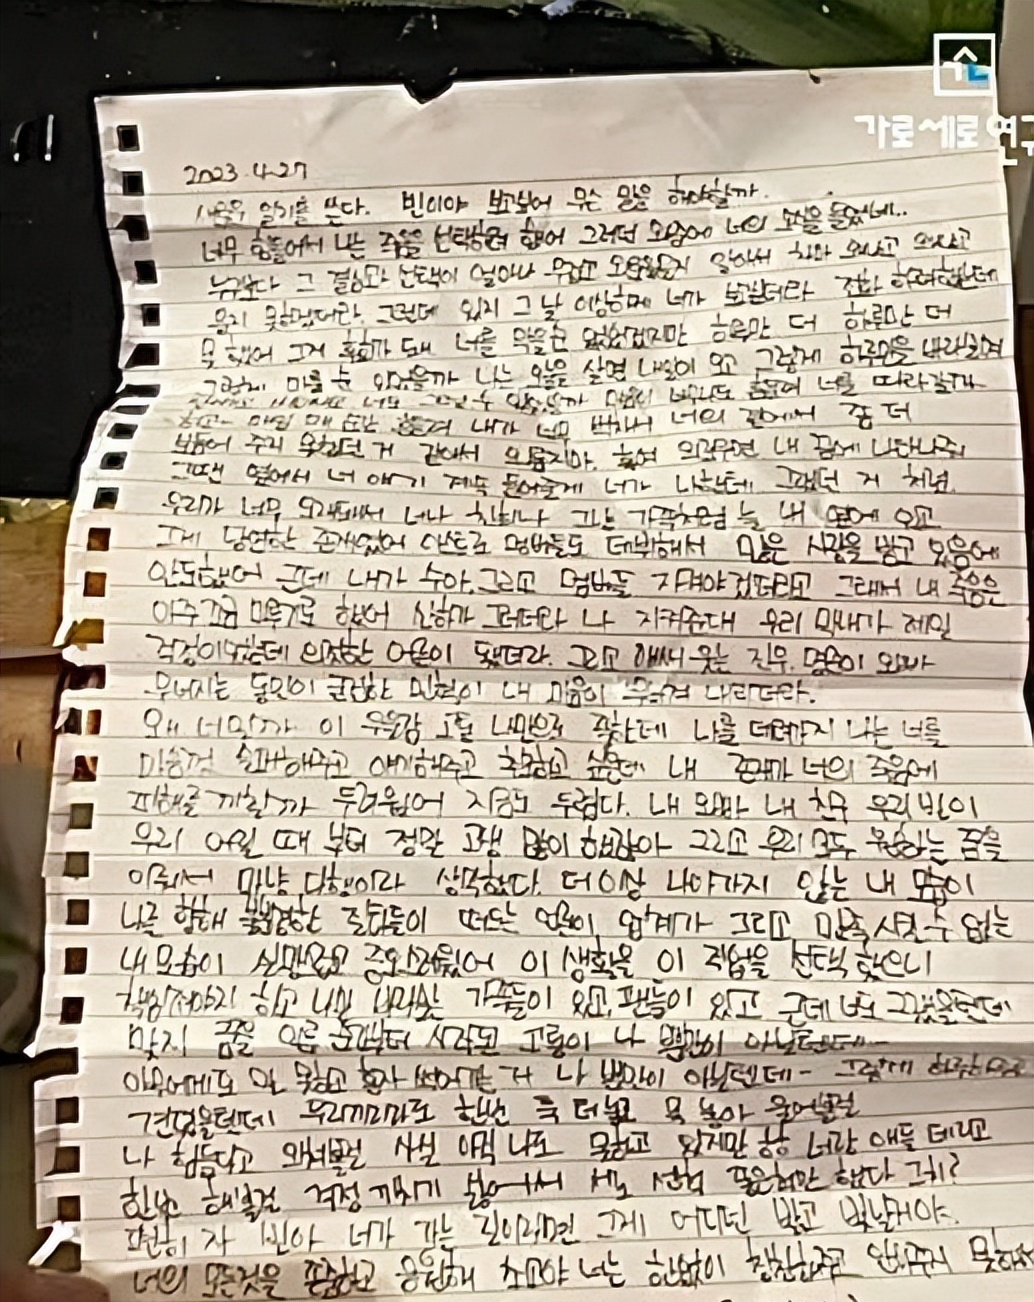 가로세로연구
2023.4.27
일기를 쓴다. 빈이야 보고싶어 무슨 말을 해야할까.
너무 힘들어서 나는 죽음을 선택하려 했어 그러던 와중에 너의 소식을 들었네..
누구보다 그 결심과 선택이 얼마나 무섭고 외로웠을지 알아서 화나고
웃지 못하겠더라. 그런데 있지 그 날 이상하게 너가 보고싶더라 전화 하려했는데
못 했어 그게 후회가 돼 너를 막을순 없었겠지만 하루만 더 하루만 더
그렇게 미룰 순 있었을까 나는 오늘을 살면 내일이 오고 그렇게 하루만을
너도 그럴 수 있었을까 너를 따라갈까
내가 너무 바빠서 너의 곁에서 좀 더
있어 주지 못했던 거 같아서 외롭지마. 혹여 외로우면 내 꿈에 나타나줘
그땐 옆에서 너 얘기 계속 들어줄게 너가 나한테 그랬던 거 처럼.
우리가 너무 오래돼서 너나 친하나 그는 가족처럼 늘 내 옆에 있고
그게 당연한 존재였어 아스트로 멤버들도 데뷔해서 많은 사랑을 받고 있음에
안도했어 근데 내가 수아, 그리고 멤버들 지켜야겠더라고 그래서 내 죽음은
아주 조금 미루기로 했어 산하가 그러더라 나 지켜준대 우리 막내가 제일
걱정이었는데 의젓한 어른이 됐더라. 그리고 애써 웃는 진우, 명준이 오빠
무너지는 동민이 굳건한 민혁이 내 마음이 무너져 내리더라.
왜 너일까 이 우울감 고통 나만으로 족한데 나를 데려가지 나는 너를
마음껏 슬퍼해주고 얘기해주고 추모하고 싶은데 내 존재가 너의 죽음에
피해를 끼칠까 두려웠어 지금도 두렵다. 내 오빠 내 친구 우리 빈이
우리 어릴 때 부터 정말 고생 많이 했잖아 그리고 우리 모두 원하는 꿈을
이뤄서 마냥 다행이라 생각했다. 더이상 나아가지 않는 내 모습이
나를 향해 불분명한 질타들이 떠도는 연예 업계가 그리고 만족시킬 수 없는
내 모습이 실망스럽고 증오스러웠어 이 생활을 이 직업을 선택 했으니
책임져야지 하고 나만 바라보는 가족들이 있고, 팬들이 있고 근데 너도 그랬을텐데
맞지 꿈을 이룬 순간부터 시작된 고통이 나 뿐만이 아닐텐데-
아무에게도 말 못하고 혼자 썩어가는 거 나 뿐만이 아닐텐데- 그렇게 하루하루
견뎠을텐데 우리끼리라도 한번 툭 터놓고 목 놓아 울어볼걸
나 힘들다고 외쳐볼걸 사실 아직 나도 못하고 있지만 항상 너랑 얘들 데리고
한번 해볼걸 걱정 끼치기 싫어서 서로 했다 그치?
편히 자 빈아 너가 가는 길이라면 그게 어디던 밝고 빛날거야.
너의 모든것을 존중하고 응원해 소고야 너는 한없이 칭찬해주고 안아주지 못해서